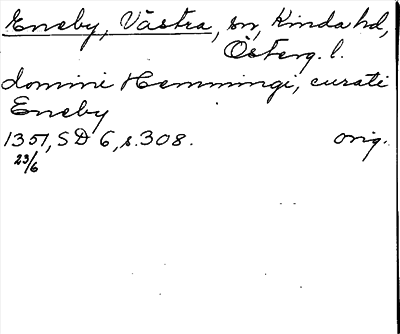 Eneby, Västra, sn, Kinda hd,
Österg. l.
domini Hemmingi, curati
Eneby
1351, SD 6, s. 308. orig.
23/6